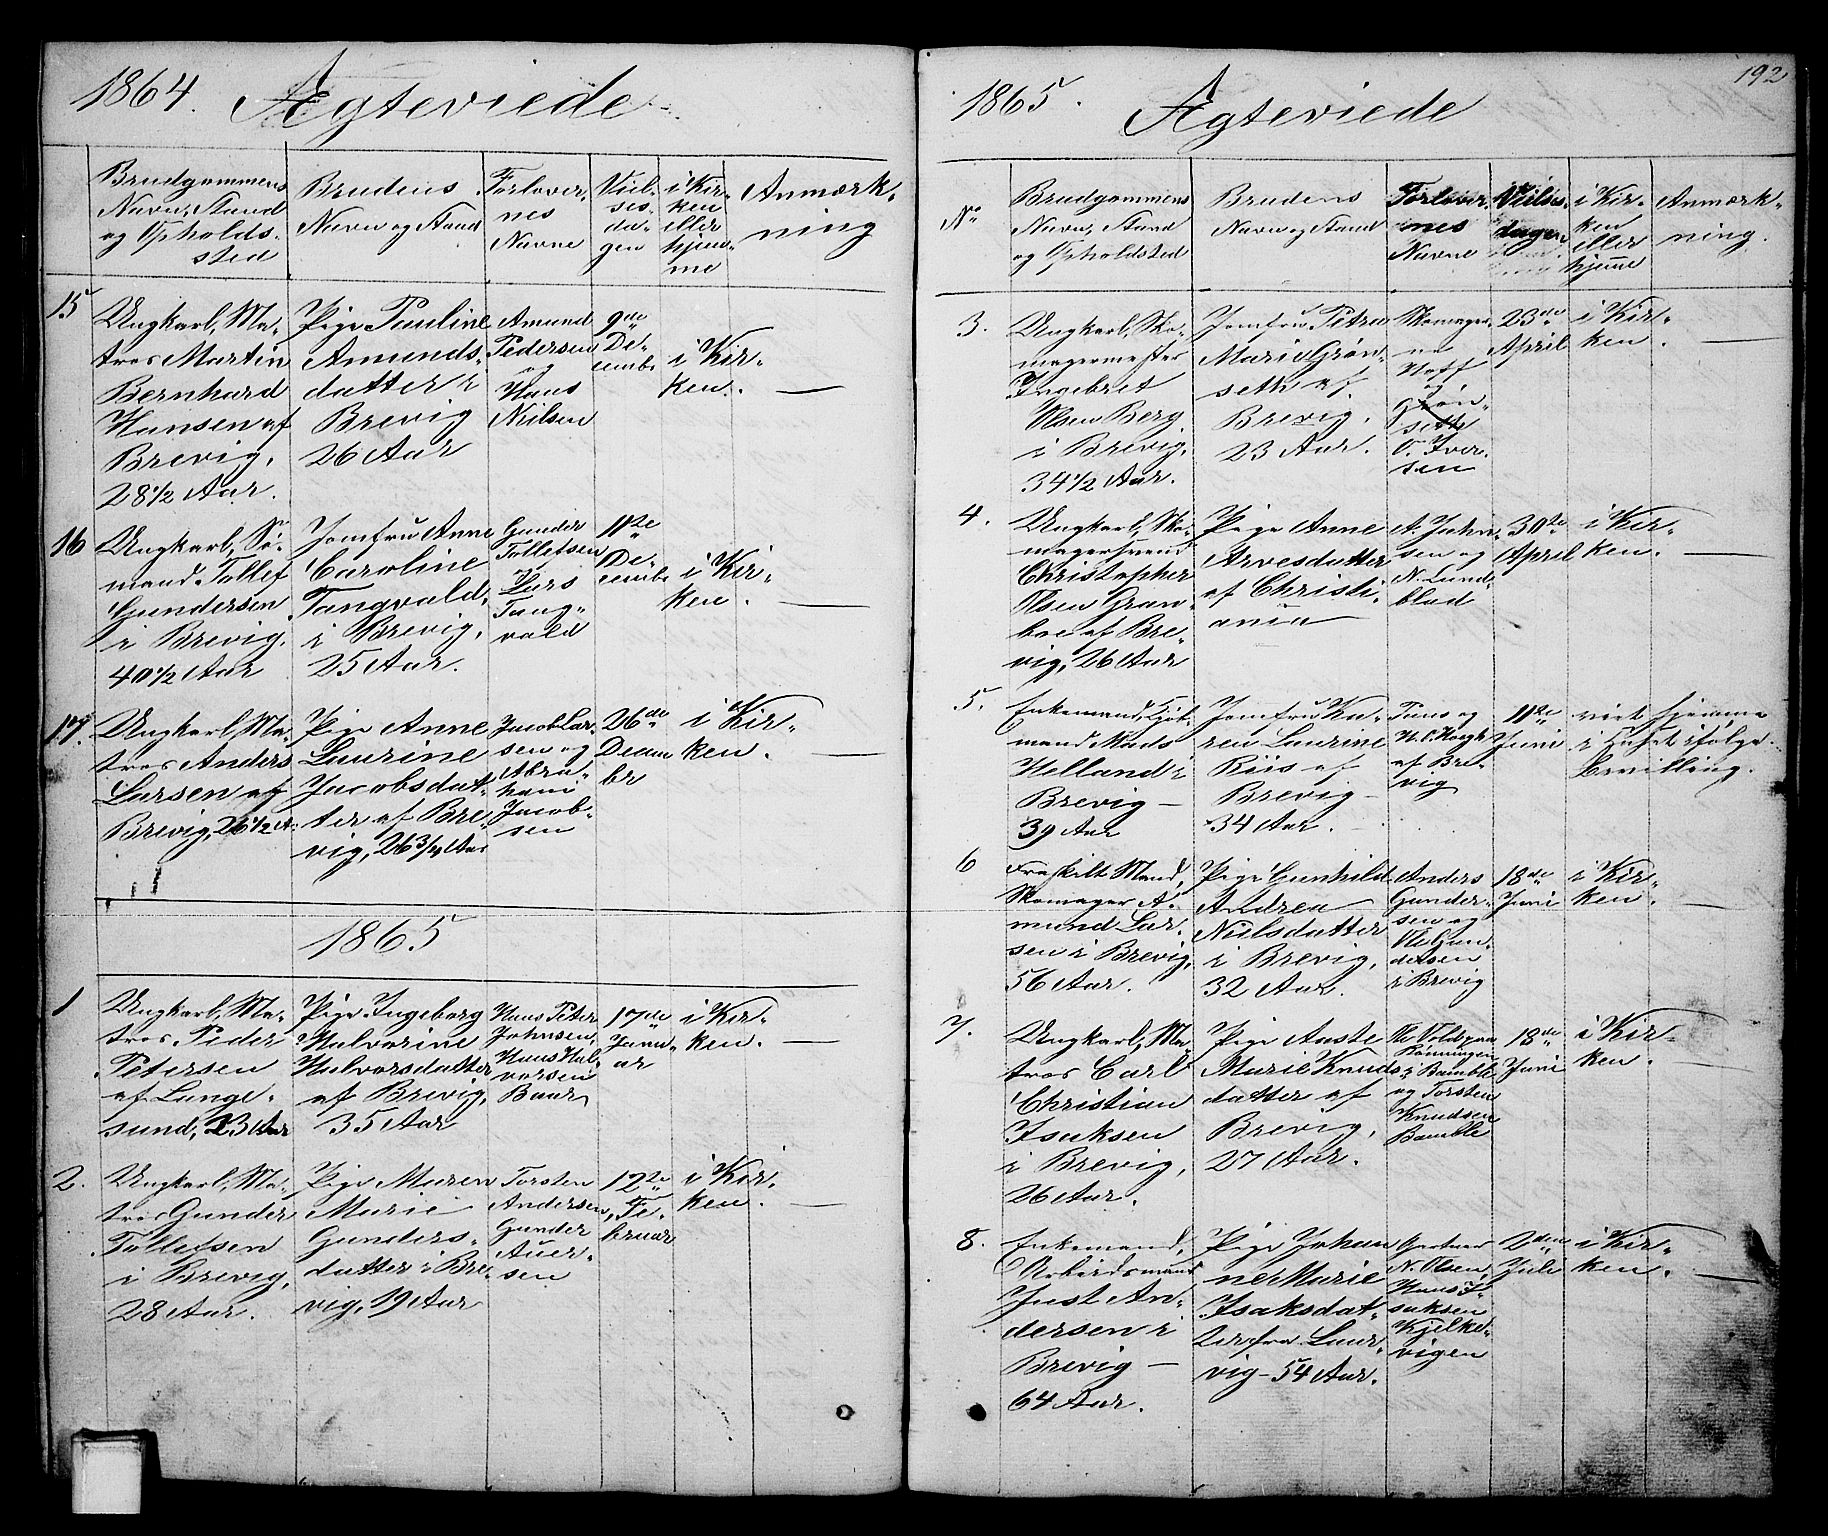 1864. Ægteviede
Brudgommens
Navn, Stand
og Opholds-
sted
Brudens
Navn og Stand
Forlover-
nes
Navne
Viel-
ses-
da-
gen
i Kir-
ken
eller
hjem-
me
Anmærk-
ning
15
Ungkarl, Ma-
tros Martin
Bernhard
Hansen af
Brevig,
28 1/2 Aar.
Pige Pauline
Amunds-
datter i
Brevig
26 Aar
Amund
Pedersen
og
Hans
Nielsen
9de
De-
cembr
i Kir-
ken. —
16
Ungkarl, Sø-
mand Tollef
Gundersen
i Brevig,
40 1/2 Aar
Jomfru Anne
Caroline
Tangvald,
i Brevig,
25 Aar.
Gunder
Tollefsen
Lars
Tang-
vald
11te
De-
cembr
i Kir-
ken. —
17.
Ungkarl, Ma-
tros Anders
Larsen af
Brevig, 26 1/2 A.
Pige Anne
Laurine
Jacobsdat-
ter af Bre-
vig, 26 3/4 Aar
Jacob Lar-
sen og
Abra-
ham
Jacob-
sen
26de
Decem
br
i Kir-
ken. —
1865
1
Ungkarl, Ma-
tros Peder
Petersen
af Lange-
sund, 23 Aar
Pige Ingeborg
Halvorine
Halvorsdatter
af Brevig,
35 Aar
Hans Peter
Johnsen,
Hans Hal-
vorsen
Baar
17de
Janu-
ar
i Kir-
ken. —
2.
Ungkarl, Ma-
tros Gunder
Tollefsen
i Brevig,
28 Aar.
Pige Maren
Marie
Gunders-
datter i Bre-
vig, 19 Aar
Torsten
Andersen,
Gunder
Auer-
sen
12te
Fe-
bruar
i Kir-
ken. —
192
1865. Ægteviede
No
Brudgommens
Navn, Stand
og Opholdsted
Brudens
Navn og Stand
Forlover-
nes
Navne
Vielses-
dagen
i Kir-
ken
eller
hjemme
Anmærk-
ning.
3.
Ungkarl, Sko-
magermester
Ingebret
Olsen Berg
i Brevig,
34 1/2 Aar.
Jomfru Petra
Marie Grøn-
seth af
Brevig.
23 Aar.
Skomager-
ne
Hoff
og
Grøn-
seth
O. Iver-
sen
23de
April
i Kir-
ken. —
4.
Ungkarl, Sko-
magersvend
Christopher
Olsen Gran-
boe af Bre-
vig, 26 Aar
Pige Anne
Arvesdatter
af Christi-
ania
A. John-
sen og
N. Lund-
blad
30te
April
i Kir-
ken. —
5.
Enkemand, Kjøb-
mand Mads
Helland i
Brevig —
39 Aar
Jomfru Ka-
ren Laurine
Riis af
Brevig —
34 Aar.
og
af Bre-
vig
11te
Juni
viet hjemme
i Huset ifølge
Bevilling.
6
Fraskilt Mand,
Skomager A-
mund Lar-
sen i Brevig,
56 Aar.
Pige Gunhild
Andrea
Nielsdatter
i Brevig,
32 Aar.
Anders
Gunder-
sen og
Ole Gun-
dersen
i Brevig
18de
Juni
i Kir-
ken. —
7.
Ungkarl, Ma-
tros Carl
Christian
Isaksen
i Brevig,
26 Aar.
Pige Aaste
Marie Knuds
datter af
Brevig,
27 Aar.
Rønningen
i Bamble
og Torsten
Knudsen
Bamble
18de
Juni
i Kir-
ken. —
8.
Enkemand,
Arbeidsmand
Just An-
dersen i
Brevig —
64 Aar.
Pige Johan
ne Marie
Isaksdat-
ter fra Laur-
vig — 54 Aar.
Gartner
N. Olsen,
Hans I-
saksen
Kjelke-
vigen
2den
Juli
i Kir-
ken. —